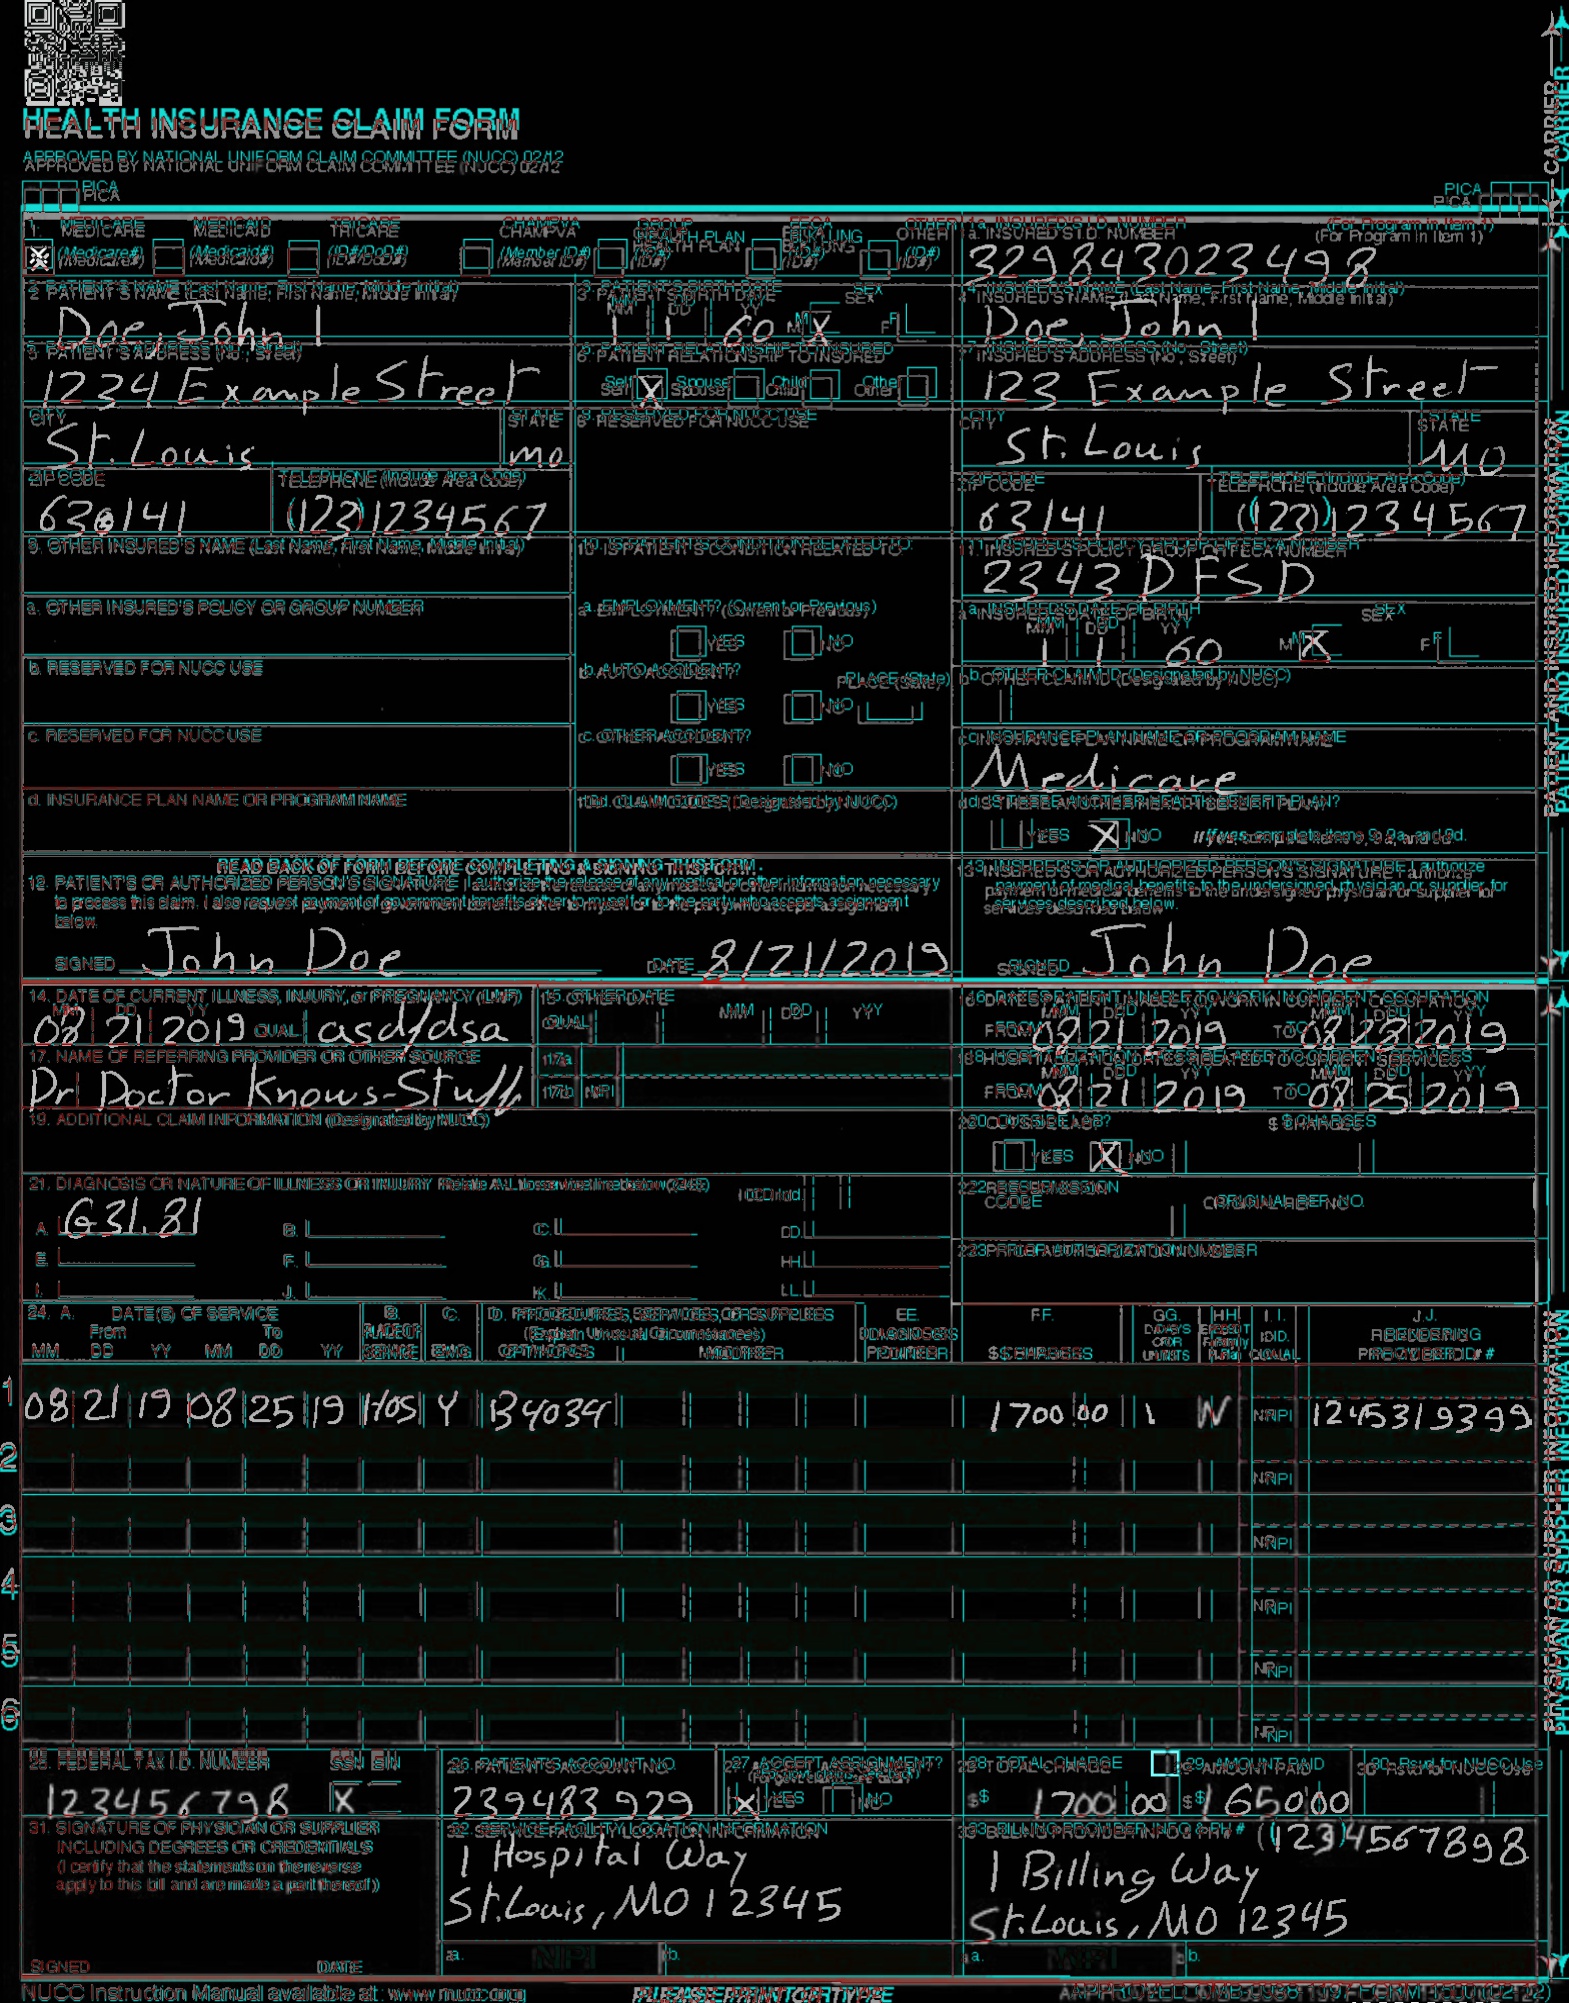 HEALTH INSURANCE CLAIM FORM
APPROVED BY NATIONAL UNIFORM CLAIM COMMITTEE (NUCC) 02/12
PICA PICA
CARRIER
1. MEDICARE MEDICAID TRICARE CHAMPVA GROUP HEALTH PLAN FECA BLK LUNG OTHER
(Medicare#) (Medicaid#) (ID#/DoD#) (Member ID#) (ID#) (ID#) (ID#)
1a. INSURED'S I.D. NUMBER (For Program in Item 1)
329843023498
2. PATIENT'S NAME (Last Name, First Name, Middle Initial)
Doe, John I
3. PATIENT'S BIRTH DATE SEX
MM DD YY
1 1 60 M X F
4. INSURED'S NAME (Last Name, First Name, Middle Initial)
Doe, John I
5. PATIENT'S ADDRESS (No., Street)
1234 Example Street
6. PATIENT RELATIONSHIP TO INSURED
Self X Spouse Child Other
7. INSURED'S ADDRESS (No., Street)
123 Example Street
CITY STATE
St. Louis mo
8. RESERVED FOR NUCC USE
CITY STATE
St. Louis MO
ZIP CODE TELEPHONE (Include Area Code)
630141 (123) 1234567
ZIP CODE TELEPHONE (Include Area Code)
63141 (123) 1234567
9. OTHER INSURED'S NAME (Last Name, First Name, Middle Initial)
10. IS PATIENT'S CONDITION RELATED TO:
11. INSURED'S POLICY GROUP OR FECA NUMBER
2343 DFSD
a. OTHER INSURED'S POLICY OR GROUP NUMBER
a. EMPLOYMENT? (Current or Previous)
YES NO
a. INSURED'S DATE OF BIRTH SEX
MM DD YY
1 1 60 M X F
b. RESERVED FOR NUCC USE
b. AUTO ACCIDENT? PLACE (State)
YES NO
b. OTHER CLAIM ID (Designated by NUCC)
c. RESERVED FOR NUCC USE
c. OTHER ACCIDENT?
YES NO
c. INSURANCE PLAN NAME OR PROGRAM NAME
Medicare
d. INSURANCE PLAN NAME OR PROGRAM NAME
10d. CLAIM CODES (Designated by NUCC)
d. IS THERE ANOTHER HEALTH BENEFIT PLAN?
YES X NO If yes, complete items 9, 9a, and 9d.
READ BACK OF FORM BEFORE COMPLETING & SIGNING THIS FORM.
12. PATIENT'S OR AUTHORIZED PERSON'S SIGNATURE I authorize the release of any medical or other information necessary
to process this claim. I also request payment of government benefits either to myself or to the party who accepts assignment
below.
SIGNED John Doe DATE 8/21/2019
13. INSURED'S OR AUTHORIZED PERSON'S SIGNATURE I authorize
payment of medical benefits to the undersigned physician or supplier for
services described below.
SIGNED John Doe
PATIENT AND INSURED INFORMATION
14. DATE OF CURRENT ILLNESS, INJURY, or PREGNANCY (LMP)
MM DD YY
08 21 2019 QUAL. asdfdsa
15. OTHER DATE
QUAL. MM DD YY
16. DATES PATIENT UNABLE TO WORK IN CURRENT OCCUPATION
MM DD YY MM DD YY
FROM 08 21 2019 TO 08 28 2019
17. NAME OF REFERRING PROVIDER OR OTHER SOURCE
Dr Doctor Knows-Stuff
17a.
17b. NPI
18. HOSPITALIZATION DATES RELATED TO CURRENT SERVICES
MM DD YY MM DD YY
FROM 08 21 2019 TO 08 25 2019
19. ADDITIONAL CLAIM INFORMATION (Designated by NUCC)
20. OUTSIDE LAB? $ CHARGES
YES X NO
21. DIAGNOSIS OR NATURE OF ILLNESS OR INJURY Relate A-L to service line below (24E) ICD Ind.
A. G31.81 B. C. D.
E. F. G. H.
I. J. K. L.
22. RESUBMISSION CODE ORIGINAL REF. NO.
23. PRIOR AUTHORIZATION NUMBER
24. A. DATE(S) OF SERVICE B. C. D. PROCEDURES, SERVICES, OR SUPPLIES E. F. G. H. I. J.
From To PLACE OF (Explain Unusual Circumstances) DIAGNOSIS DAYS OR EPSDT Family ID. RENDERING
MM DD YY MM DD YY SERVICE EMG CPT/HCPCS MODIFIER POINTER $ CHARGES UNITS Plan QUAL. PROVIDER ID. #
1 08 21 19 08 25 19 HOS Y B4034 1700 00 1 W NPI 1245319399
2 NPI
3 NPI
4 NPI
5 NPI
6 NPI
25. FEDERAL TAX I.D. NUMBER SSN EIN
123456798 X
26. PATIENT'S ACCOUNT NO.
239483929
27. ACCEPT ASSIGNMENT?
(For govt. claims, see back)
X YES NO
28. TOTAL CHARGE
$ 1700 00
29. AMOUNT PAID
$ 1650 00
30. Rsvd for NUCC Use
31. SIGNATURE OF PHYSICIAN OR SUPPLIER
INCLUDING DEGREES OR CREDENTIALS
(I certify that the statements on the reverse
apply to this bill and are made a part thereof.)
SIGNED DATE
32. SERVICE FACILITY LOCATION INFORMATION
1 Hospital Way
St. Louis, MO 12345
a. NPI b.
33. BILLING PROVIDER INFO & PH # (123) 4567898
1 Billing Way
St. Louis, MO 12345
a. NPI b.
PHYSICIAN OR SUPPLIER INFORMATION
NUCC Instruction Manual available at: www.nucc.org
PLEASE PRINT OR TYPE